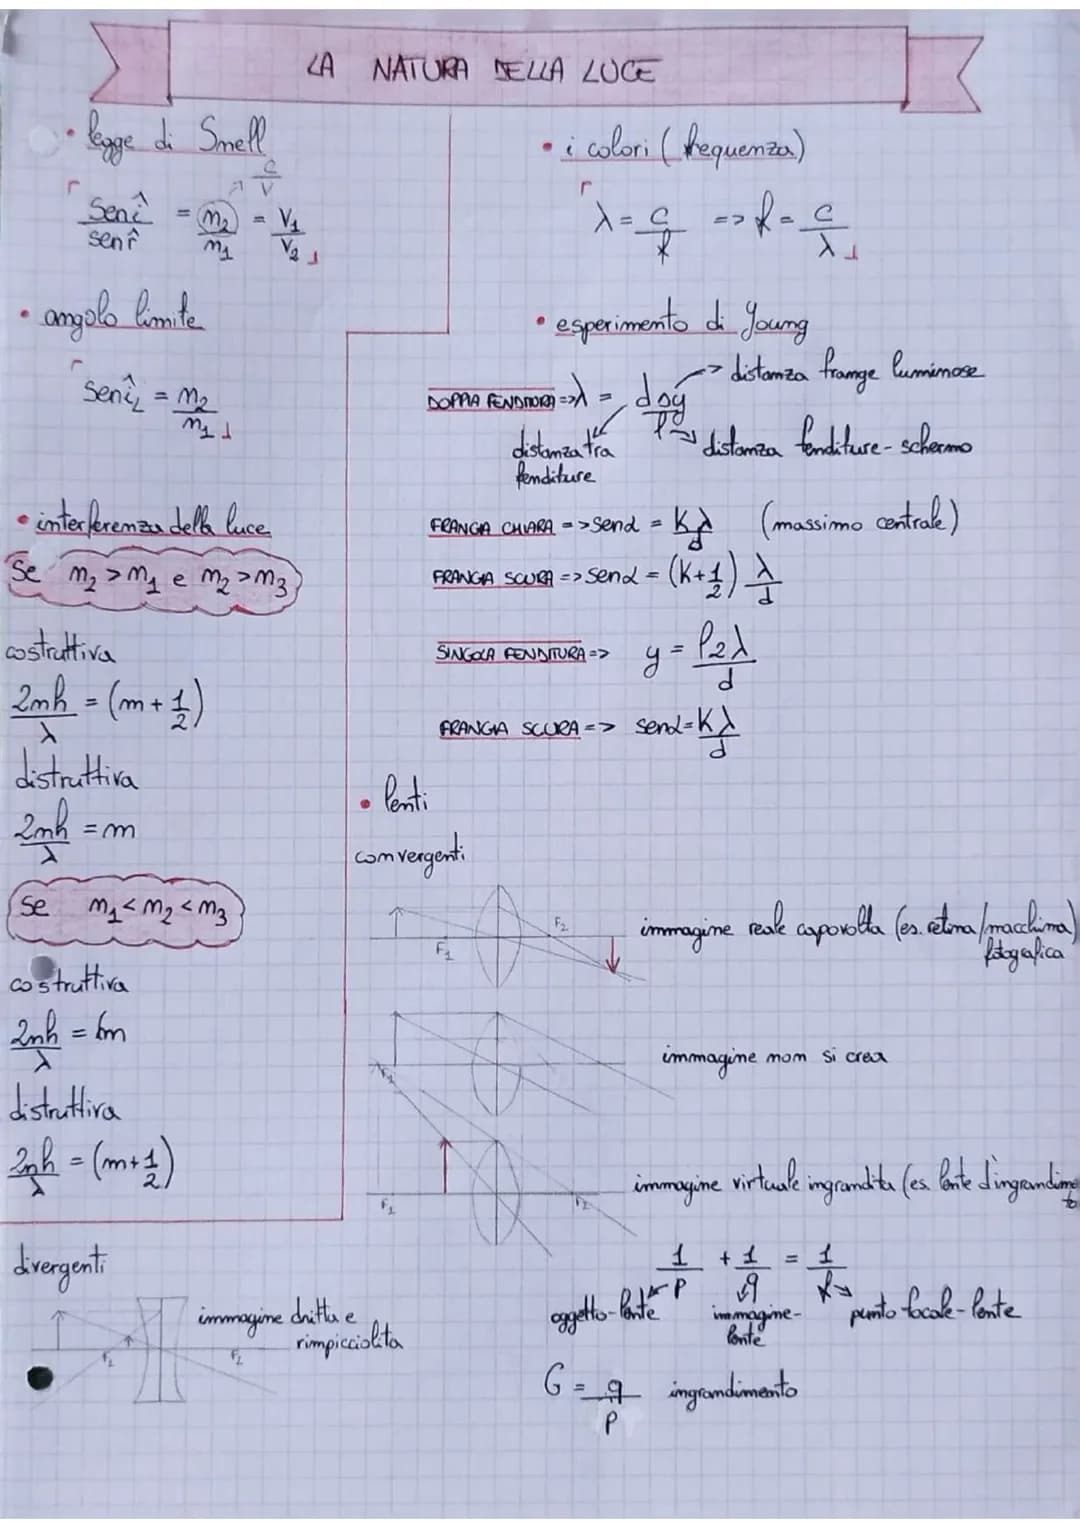 LA NATURA DELLA LUCE
• legge di Snell
sen î / sen r̂ = n₂ / n₁ = V₁ / V₂
c / v
• angolo limite
sen î_L = n₂ / n₁
• interferenza della luce
se n₂ > n₁ e n₂ > n₃
costruttiva
2nh / λ = (m + 1/2)
distruttiva
2nh / λ = m
se n₁ < n₂ < n₃
costruttiva
2nh / λ = m
distruttiva
2nh / λ = (m + 1/2)
• i colori (frequenza)
λ = c / f => f = c / λ
• esperimento di Young
DOPPIA FENDITURA => λ = d Δy / l
distanza frange luminose
distanza tra fenditure
distanza fenditure - schermo
FRANGIA CHIARA => sen α = K λ / d (massimo centrale)
FRANGIA SCURA => sen α = (K + 1/2) λ / d
SINGOLA FENDITURA => y = l 2 λ / d
FRANGIA SCURA => sen α = K λ / d
• lenti
convergenti
F₁ F₂
immagine reale capovolta (es. retina/macchina fotografica
immagine non si crea
F₁ F₂
immagine virtuale ingrandita (es. lente d'ingrandimento
divergenti
F₁ F₂
immagine dritta e rimpicciolita
1 / p + 1 / q = 1 / f
oggetto-lente
immagine-lente
punto focale-lente
G = q / p ingrandimento